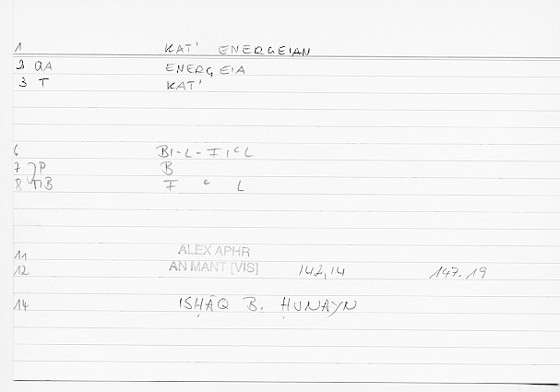 1 KAT' ENERGEIAN
2 QA ENERGEIA
3 T KAT'
6 BI-L-FIʿL
7 P B
8 TIB F ʿ L
11 ALEX APHR
12 AN MANT [VIS] 142,14 147.19
14 ISḤĀQ B. ḤUNAYN